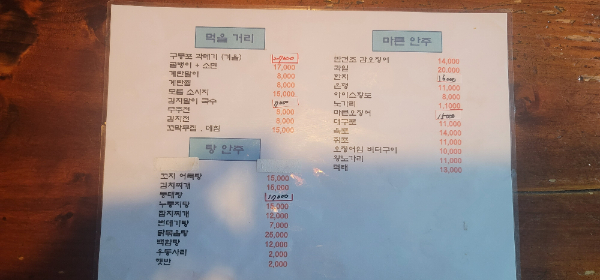 먹을 거리
구룡포 과메기 (겨울) 20,000
골뱅이 + 소면 17,000
계란말이 8,000
계란찜 8,000
모듬 소시지 15,000
김치말이 국수
부추전 9,000
김치전 8,000
꼬막무침 , 데침 15,000
탕 안주
꼬치 어묵탕 15,000
김치찌개 15,000
동태탕
누룽지탕 15,000
참치찌개 12,000
번데기탕 7,000
닭볶음탕 25,000
백합탕 12,000
우동사리 2,000
햇반 2,000
마른 안주
반건조 오징어 14,000
과일 20,000
한치 15,000
은행 11,000
아이스황도 8,000
노가리
마른오징어 15,000
대구포 11,000
육포 14,000
쥐포 11,000
오징어입 버터구이 10,000
왕노가리 11,000
먹태 13,000